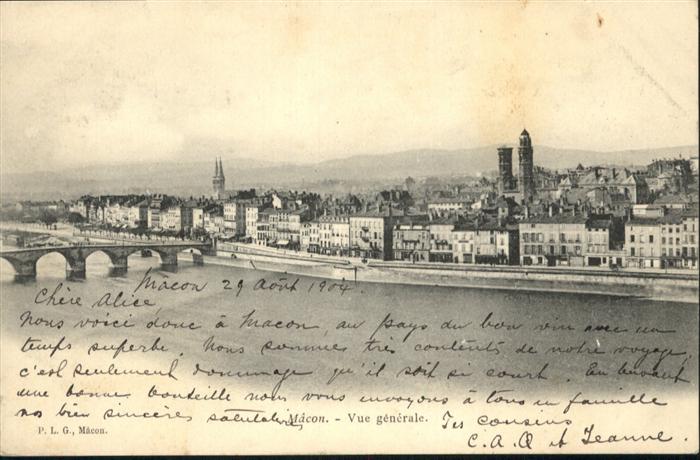 Mâcon 29 Août 1904.
Chère Alice
Nous voici donc à Macon, au pays du bon vin avec un
temps superbe. Nous sommes très contents de notre voyage,
c'est seulement dommage qu'il soit si court. En buvant
une bonne bouteille nous vous envoyons à tous en famille
nos bien sincères salutations
Tes cousins
C. A. Q et Jeanne.
Mâcon. - Vue générale.
P. L. G., Mâcon.